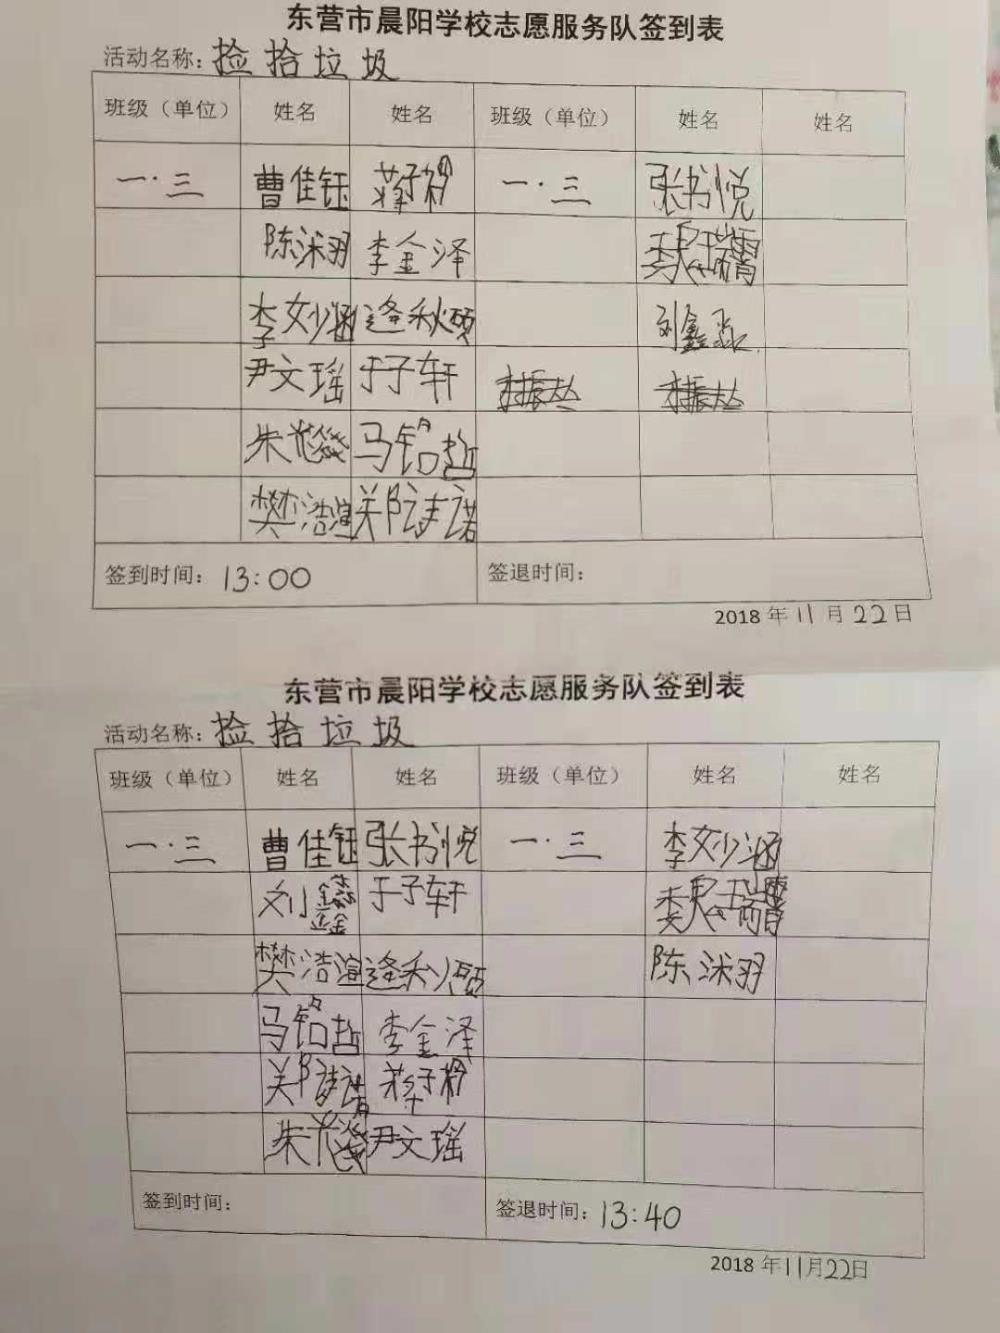 东营市晨阳学校志愿服务队签到表
活动名称：捡拾垃圾
班级（单位） 姓名 姓名 班级（单位） 姓名 姓名
一·三 曹佳钰 一·三 张书悦
陈沭羽 李金泽 魏瑞霄
李妙涵 逄秋硕 刘鑫淼
尹文瑶 于子轩
朱 马铭哲
樊浩渲 关郑诗诺
签到时间：13:00 签退时间：
2018 年 11 月 22 日
东营市晨阳学校志愿服务队签到表
活动名称：捡拾垃圾
班级（单位） 姓名 姓名 班级（单位） 姓名 姓名
一·三 曹佳钰 张书悦 一·三 李妙涵
刘鑫 于子轩 魏瑞霄
樊浩渲 逄秋硕 陈沭羽
马铭哲 李金泽
尹文瑶
签到时间： 签退时间：13:40
2018 年 11 月 22 日